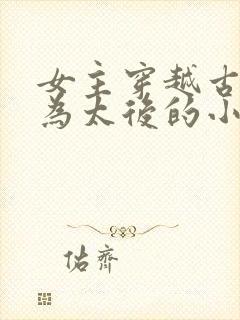 女主穿越古
為太後的小
佑齊